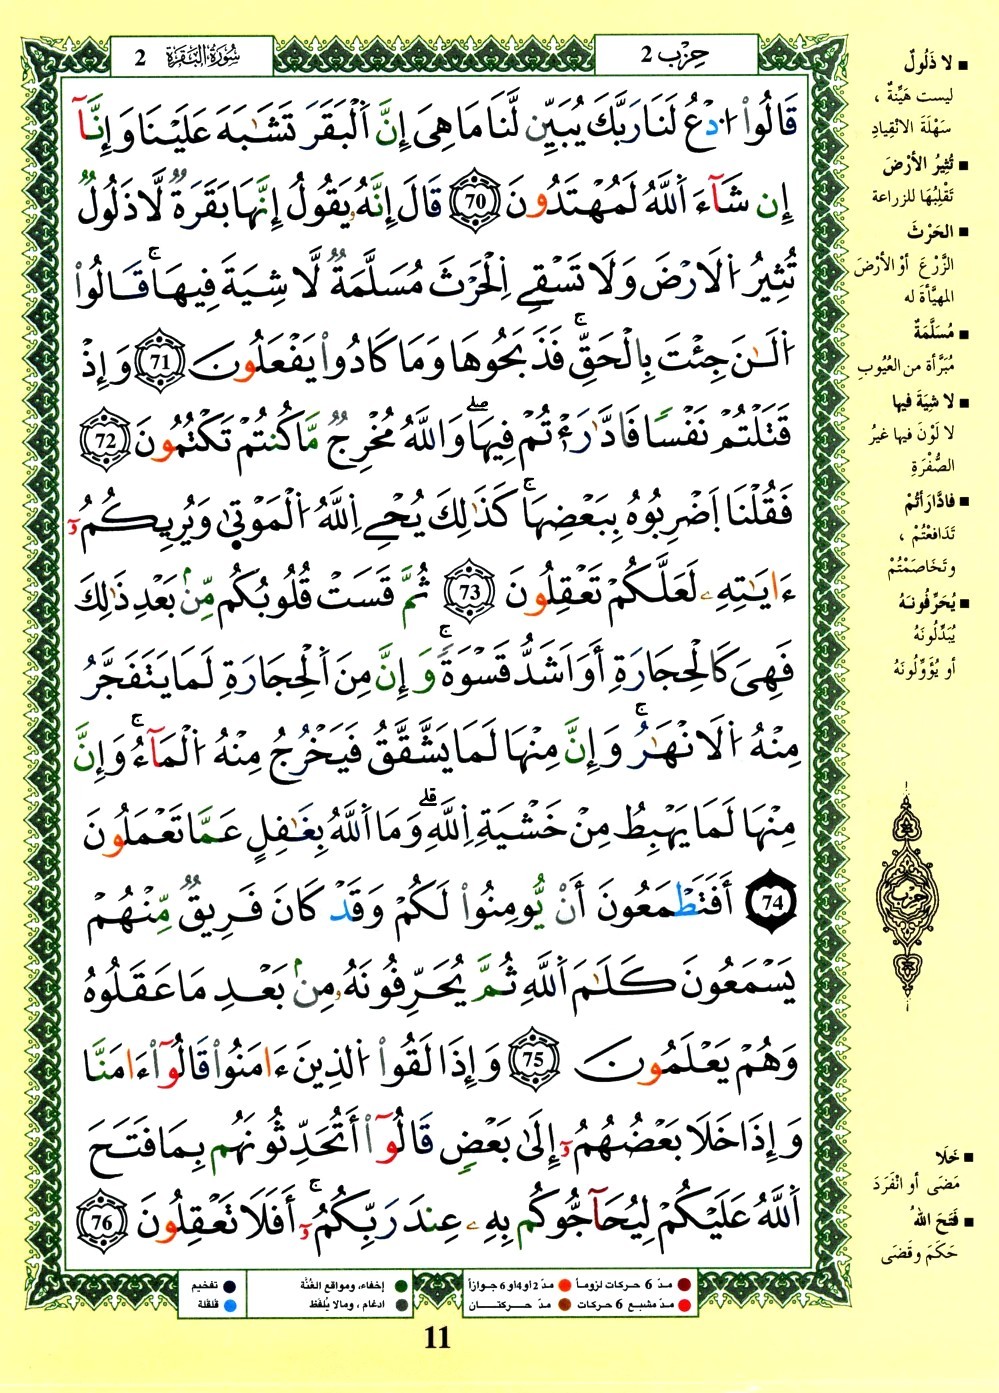 سُورَةُ البَقَرَة 2
حِزْب 2
قَالُواْ اُدْعُ لَنَا رَبَّكَ يُبَيِّن لَّنَا مَا هِيَ إِنَّ اَلْبَقَرَ تَشَٰبَهَ عَلَيْنَا وَإِنَّآ
إِن شَآءَ اَللَّهُ لَمُهْتَدُونَ 70 قَالَ إِنَّهُۥ يَقُولُ إِنَّهَا بَقَرَةٞ لَّا ذَلُولٞ
تُثِيرُ اُلَارْضَ وَلَا تَسْقِے اِلْحَرْثَ مُسَلَّمَةٞ لَّا شِيَةَ فِيهَاۚ قَالُواْ
اُلَٰنَ جِئْتَ بِالْحَقِّۚ فَذَبَحُوهَا وَمَا كَادُواْ يَفْعَلُونَ 71 وَإِذْ
قَتَلْتُمْ نَفْساٗ فَادَّٰرَْٰٔتُمْ فِيهَاۖ وَاللَّهُ مُخْرِجٞ مَّا كُنتُمْ تَكْتُمُونَ 72
فَقُلْنَا اَضْرِبُوهُ بِبَعْضِهَاۚ كَذَٰلِكَ يُحْيِ اِللَّهُ اُلْمَوْتىٰ وَيُرِيكُمُۥٓ
ءَايَٰتِهِۦ لَعَلَّكُمْ تَعْقِلُونَ 73 ثُمَّ قَسَتْ قُلُوبُكُم مِّنۢ بَعْدِ ذَٰلِكَ
فَهِيَ كَالْحِجَارَةِ أَوَ اَشَدُّ قَسْوَةٗۚ وَإِنَّ مِنَ اَلْحِجَارَةِ لَمَا يَتَفَجَّرُ
مِنْهُ اُلَانْهَٰرُۚ وَإِنَّ مِنْهَا لَمَا يَشَّقَّقُ فَيَخْرُجُ مِنْهُ اُلْمَآءُۚ وَإِنَّ
مِنْهَا لَمَا يَهْبِطُ مِنْ خَشْيَةِ اِللَّهِۗ وَمَا اَللَّهُ بِغَٰفِلٍ عَمَّا تَعْمَلُونَ
74 أَفَتَطْمَعُونَ أَنْ يُّومِنُواْ لَكُمْ وَقَدْ كَانَ فَرِيقٞ مِّنْهُمْ
يَسْمَعُونَ كَلَٰمَ اَللَّهِ ثُمَّ يُحَرِّفُونَهُۥ مِنۢ بَعْدِ مَا عَقَلُوهُ
وَهُمْ يَعْلَمُونَ 75 وَإِذَا لَقُواْ اُلذِينَ ءَامَنُواْ قَالُوٓاْ ءَامَنَّا
وَإِذَا خَلَا بَعْضُهُمُۥٓ إِلَىٰ بَعْضٖ قَالُوٓاْ أَتُحَدِّثُونَهُم بِمَا فَتَحَ
اَللَّهُ عَلَيْكُمْ لِيُحَآجُّوكُم بِهِۦ عِندَ رَبِّكُمُۥٓۚ أَفَلَا تَعْقِلُونَ 76
■ لا ذَلُولٌ
ليست هَيِّنةٌ ،
سَهْلَةَ الانْقِيادِ
■ تُثِيرُ الأرْضَ
تَقْلِبُهَا للزراعة
■ الحَرْثَ
الزَّرْعَ أوْ الأرْضَ
المهيَّأةَ له
■ مُسَلَّمَةٌ
مُبَرَّأة من العُيُوبِ
■ لا شِيَةَ فيها
لا لَوْنَ فيها غيرُ
الصُّفْرَةِ
■ فادَّارَأتُمْ
تَدَافَعْتُمْ ،
وتَخَاصَمْتُمْ
■ يُحَرِّفُونَهُ
يُبَدِّلُونَهُ
أو يُؤَوِّلُونَهُ
حِزْب
■ خَلَا
مَضَى أو انْفَرَدَ
■ فَتَحَ اللهُ
حَكَمَ وقَضَى
● مدّ 6 حركات لزوماً ● مدّ 2 أو 4 أو 6 جوازاً
● مدّ مشبع 6 حركات ● مدّ حركتـان
● إخفاء، ومواقع الغُنَّة
● ادغام ، ومالا يُلفَظ
● تفخيم
● قلقلة
11